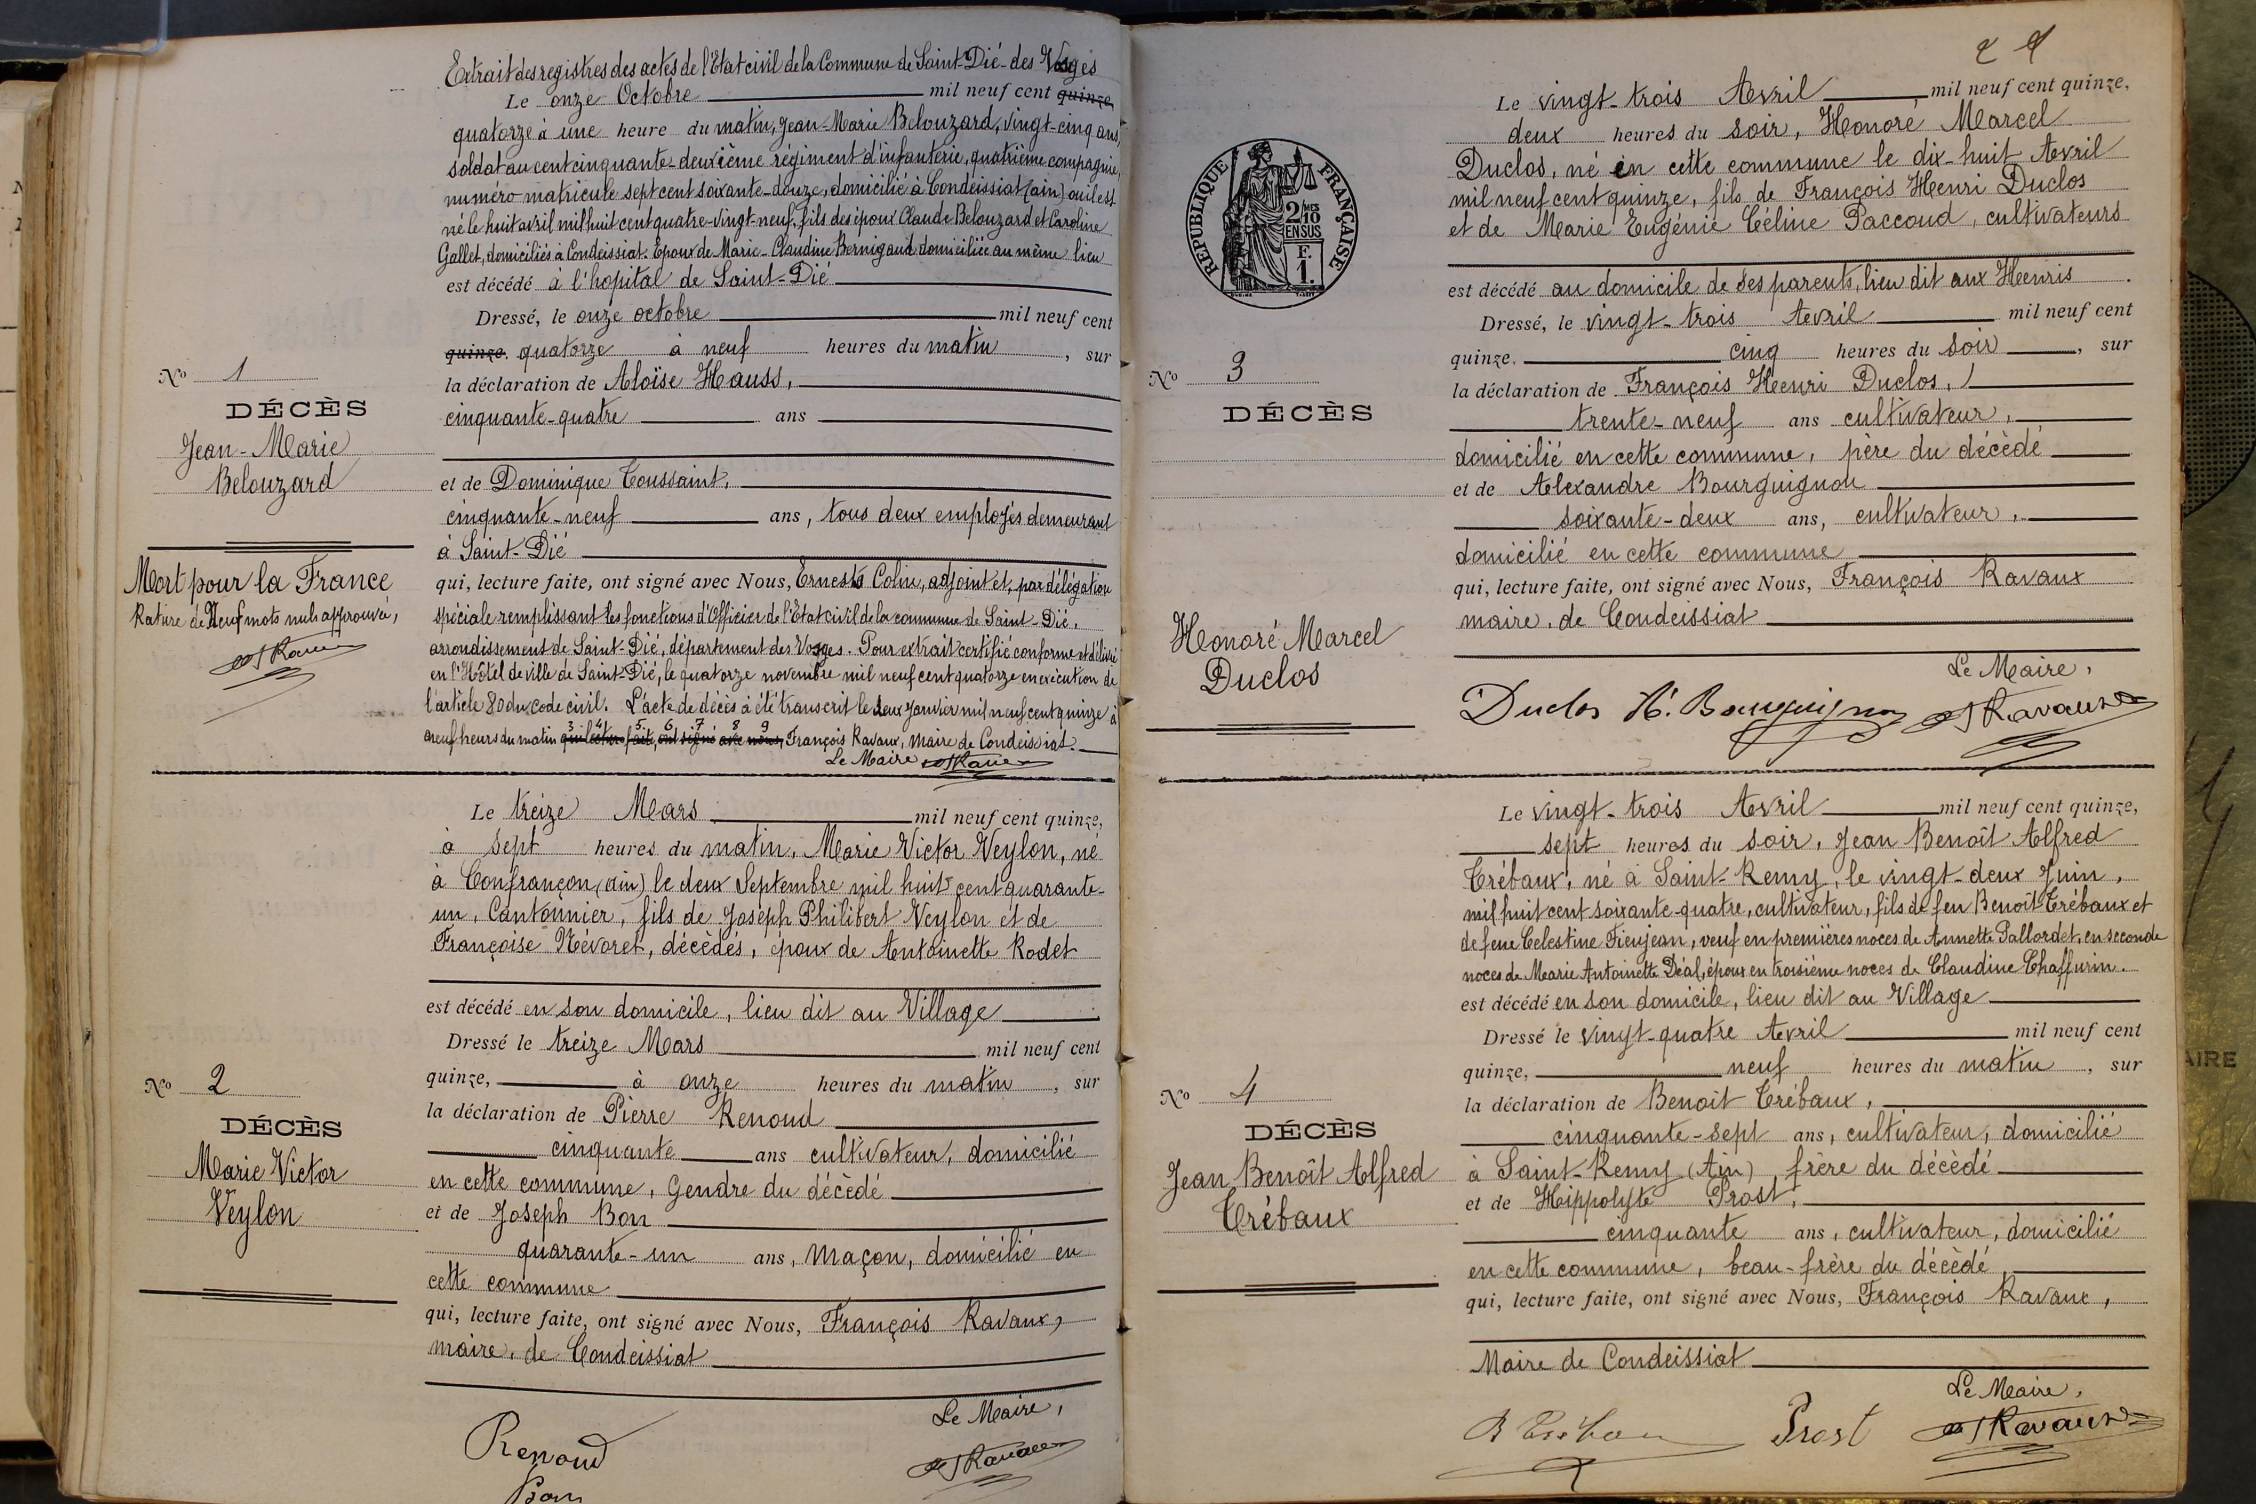 Extrait des registres des actes de l'Etat civil de la Commune de Saint-Dié-des Vosges
Le onze Octobre mil neuf cent quinze
quatorze à une heure du matin, Jean-Marie Belouzard, vingt-cinq ans,
soldat au cent cinquante-deuxième régiment d'infanterie, quatrième compagnie,
numéro matricule sept cent soixante-douze, domicilié à Condeissiat (ain) où il est
né le huit avril mil huit cent quatre-vingt-neuf, fils des époux Claude Belouzard et Caroline
Gallet, domiciliés à Condeissiat. Epoux de Marie-Claudine Bernigaud domiciliée au même lieu
est décédé à l'hopital de Saint-Dié
Dressé, le onze octobre mil neuf cent
quinze. quatorze à neuf heures du matin, sur
la déclaration de Aloïse Hauss,
cinquante-quatre ans
et de Dominique Toussaint,
cinquante-neuf ans, tous deux employés demeurant
à Saint-Dié
qui, lecture faite, ont signé avec Nous, Ernest Colin, adjoint et, par délégation
spéciale remplissant les fonctions d'Officier de l'Etat civil de la commune de Saint-Dié,
arrondissement de Saint-Dié, département des Vosges. Pour extrait certifié conforme et délivré
en l'Hôtel de ville de Saint-Dié, le quatorze novembre mil neuf cent quatorze en exécution de
l'article 80 du code civil. L'acte de décès a été transcrit le deux Janvier mil neuf cent quinze à
neuf heures du matin qui lecture faite, ont signé avec nous, François Ravaux, Maire de Condeissiat.
3 4 5 6 7 8 9
Le Maire Ravaux
No 1
DÉCÈS
Jean-Marie
Belouzard
Mort pour la France
Rature de Neuf mots nuls approuvée,
Ravaux
Le treize Mars mil neuf cent quinze,
à sept heures du matin, Marie Victor Veylon, né
à Confrançon (ain) le deux Septembre mil huit cent quarante-
un, Cantonnier, fils de Joseph Philibert Veylon et de
Françoise Névoret, décèdés, époux de Antoinette Rodet
est décédé en son domicile, lieu dit au Village
Dressé le treize Mars mil neuf cent
quinze, à onze heures du matin, sur
la déclaration de Pierre Renoud
cinquante ans cultivateur, domicilié
en cette commune, Gendre du décèdé
et de Joseph Bon
quarante-un ans, maçon, domicilié en
cette commune
qui, lecture faite, ont signé avec Nous, François Ravaux,
maire, de Condeissiat
Le Maire,
Renoud
Bon
Ravaux
No 2
DÉCÈS
Marie Victor
Veylon
RÉPUBLIQUE FRANÇAISE
2/10 MES
EN SUS
F.
1.
Le vingt-trois Avril mil neuf cent quinze,
deux heures du soir, Honoré Marcel
Duclos, né en cette commune le dix-huit Avril
mil neuf cent quinze, fils de François Henri Duclos
et de Marie Eugénie Céline Paccoud, cultivateurs
est décédé au domicile de ses parents, lieu dit aux Henris.
Dressé, le vingt-trois Avril mil neuf cent
quinze. cinq heures du soir, sur
la déclaration de François Henri Duclos,
trente-neuf ans cultivateur,
domicilié en cette commune, père du décèdé
et de Alexandre Bourguignon
soixante-deux ans, cultivateur,
domicilié en cette commune
qui, lecture faite, ont signé avec Nous, François Ravaux
maire, de Condeissiat
Le Maire,
Duclos A. Bourguignon Ravaux
No 3
DÉCÈS
Honoré Marcel
Duclos
Le vingt-trois Avril mil neuf cent quinze,
sept heures du soir, Jean Benoît Alfred
Trébaux, né à Saint-Remy, le vingt-deux Juin,
mil huit cent soixante-quatre, cultivateur, fils de feu Benoît Trébaux et
de feue Celestine Fieujean, veuf en premières noces de Annette Pallordet, en seconde
noces de Marie Antoinette Déal, époux en troisième noces de Claudine Chaffurin.
est décédé en son domicile, lieu dit au Village
Dressé le vingt-quatre Avril mil neuf cent
quinze, neuf heures du matin, sur
la déclaration de Benoit Trébaux,
cinquante-sept ans, cultivateur, domicilié
à Saint-Remy (Ain) frère du décèdé
et de Hippolyte Prost,
cinquante ans, cultivateur, domicilié
en cette commune, beau-frère du décèdé,
qui, lecture faite, ont signé avec Nous, François Ravaux,
Maire de Condeissiat
Le Maire,
Prost Ravaux
No 4
DÉCÈS
Jean Benoît Alfred
Trébaux
AIRE